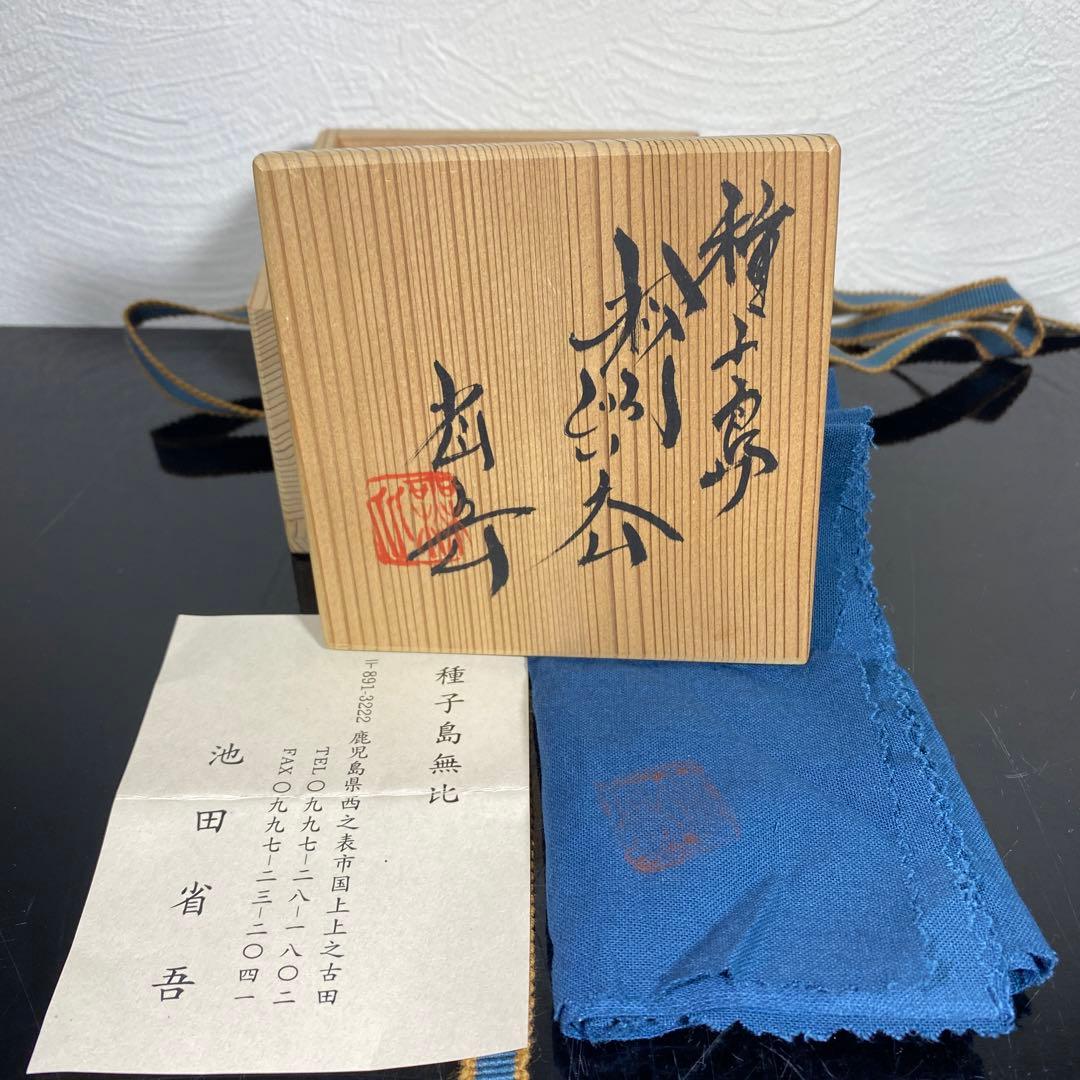 種子島
省吾
種子島無比
〒891-3222 鹿児島県西之表市国上上之古田
TEL〇九九七-二八-一八〇二
FAX〇九九七-二三-二〇四一
池田省吾